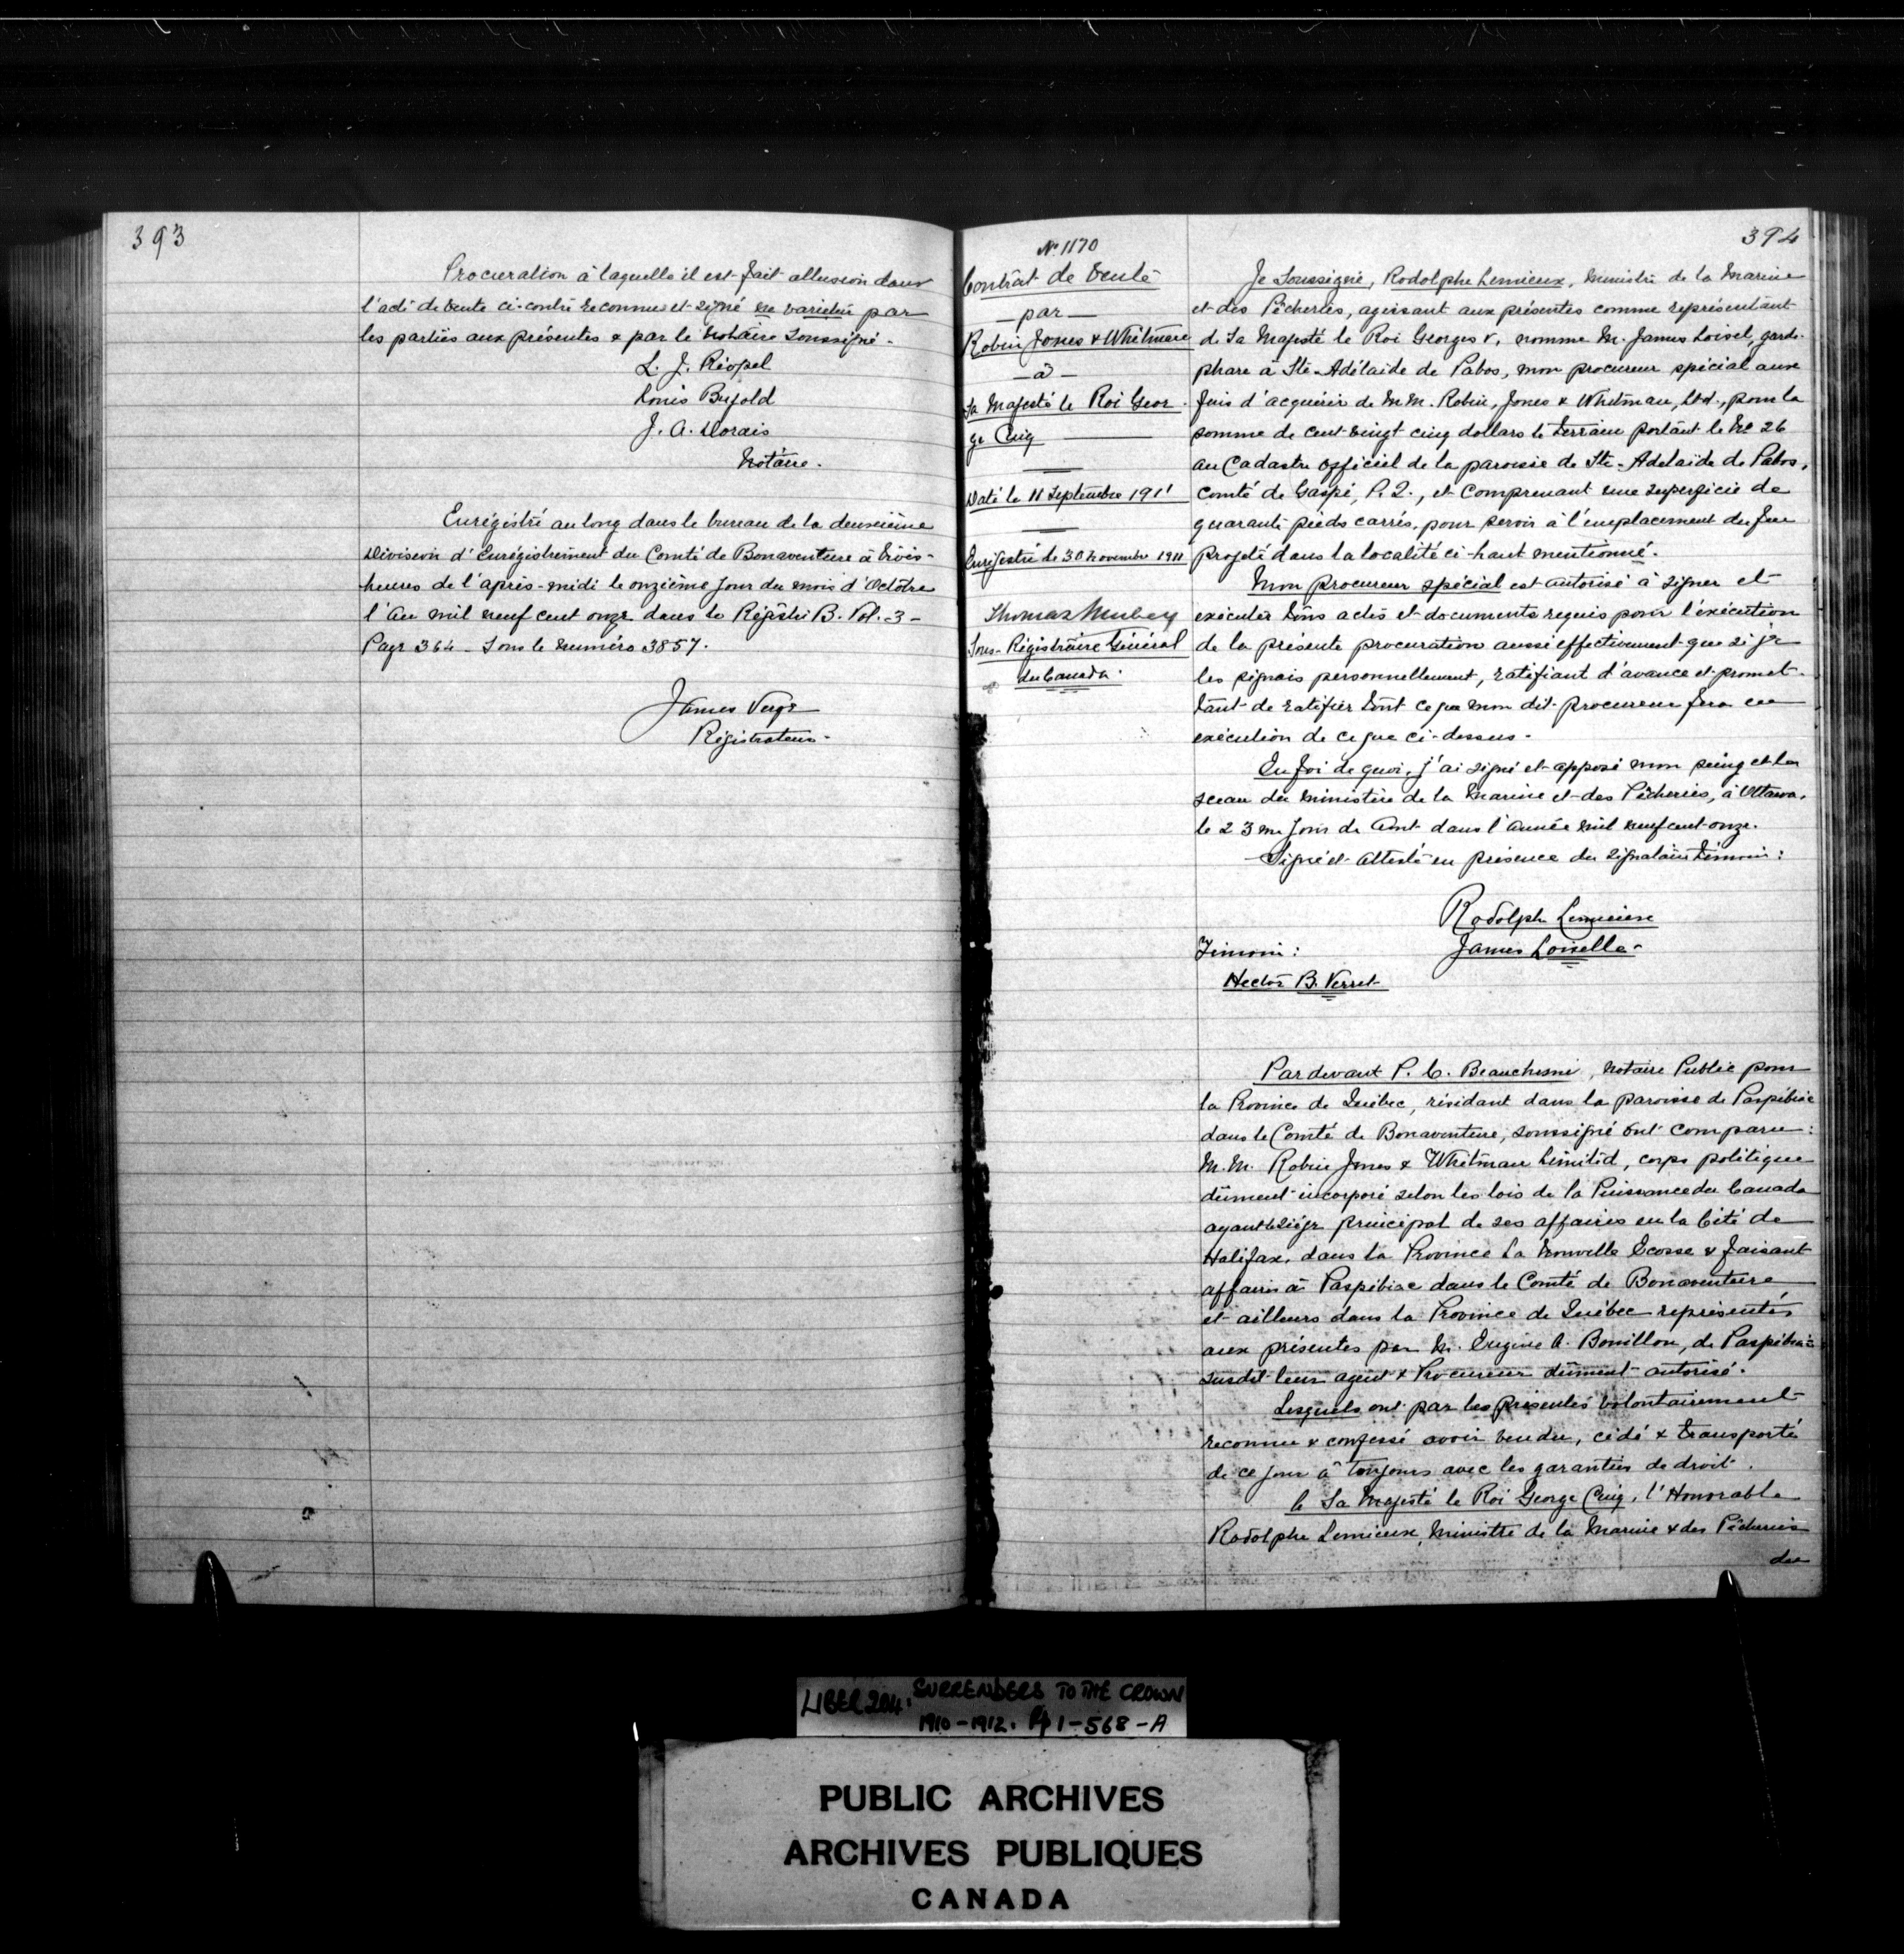 393
Procuration à laquelle il est fait allusion dans
l'acte de vente ci-contre reconnue et signé ne varietur par
les parties aux présentes & par le notaire soussigné.
L. J. Riopel
Louis Bujold
J. A. Dorais
Notaire.
Enrégistré au long dans le bureau de la deuxième
Division d'Enrégistrement du Comté de Bonaventure à trois-
heures de l'après-midi le onzième jour du mois d'Octobre
l'an mil neuf cent onze dans le Régistre B. Vol. 3 -
Page 364 - Sous le numéro 3857.
James Verge
Régistrateur.
394
No 1170
Contrat de Vente
— par —
Robin Jones & Whitman
— à —
Sa Majesté le Roi Geor-
ge Cinq
Daté le 11 Septembre 1911
Enrégistré le 30 Novembre 1911
Thomas Mulvey
Sous-Régistraire Général
du Canada.
Je Soussigné, Rodolphe Lemieux, Ministre de la Marine
et des Pêcheries, agissant aux présentes comme représentant
de Sa Majesté le Roi Georges V, nomme M. James Loisel, garde-
phare à Ste-Adélaïde de Pabos, mon procureur spécial aux
fins d'acquérir de M.M. Robin, Jones & Whitman, Ltd., pour la
somme de cent vingt cinq dollars le terrain portant le No 26
au Cadastre officiel de la paroisse de Ste-Adelaïde de Pabos,
comté de Gaspé, P.Q., et comprenant une superficie de
quarante pieds carrés, pour servir à l'emplacement du feu
projeté dans la localité ci-haut mentionné.
Mon procureur spécial est autorisé à signer et
exécuter tous actes et documents requis pour l'exécution
de la présente procuration aussi effectivement que si je
les signais personnellement, ratifiant d'avance et promet-
tant de ratifier tout ce que mon dit procureur fera en
exécution de ce que ci-dessus.
En foi de quoi, j'ai signé et apposé mon seing et le
sceau du Ministère de la Marine et des Pêcheries, à Ottawa,
le 23me jour de Août dans l'année mil neuf cent onze.
Signé et attesté en présence du signataire témoin:
Rodolphe Lemieux
Témoin: James Loiselle
Hector B. Verret
Par devant P. C. Beauchesne, Notaire Public pour
la Province de Québec, résidant dans la paroisse de Paspébiac
dans le Comté de Bonaventure, soussigné ont comparu:
M.M. Robin Jones & Whitman Limited, corps politique
dûment incorporé selon les lois de la Puissance du Canada
ayant le siège principal de ses affaires en la Cité de
Halifax, dans la Province la Nouvelle Ecosse & faisant
affaires à Paspébiac dans le Comté de Bonaventure
et ailleurs dans la Province de Québec représentés
aux présentes par M. Eugène A. Bouillon, de Paspébiac
susdit leur agent & Procureur dûment autorisé.
Lesquels ont par les présentes volontairement
reconnu & confessé avoir vendu, cédé & transporté
de ce jour à toujours avec les garanties de droit.
à Sa Majesté le Roi George Cinq, l'Honorable
Rodolphe Lemieux, Ministre de la Marine & des Pêcheries
du
LIBER 204. SURRENDERS TO THE CROWN
1910-1912. Pp 1-568-A
PUBLIC ARCHIVES
ARCHIVES PUBLIQUES
CANADA